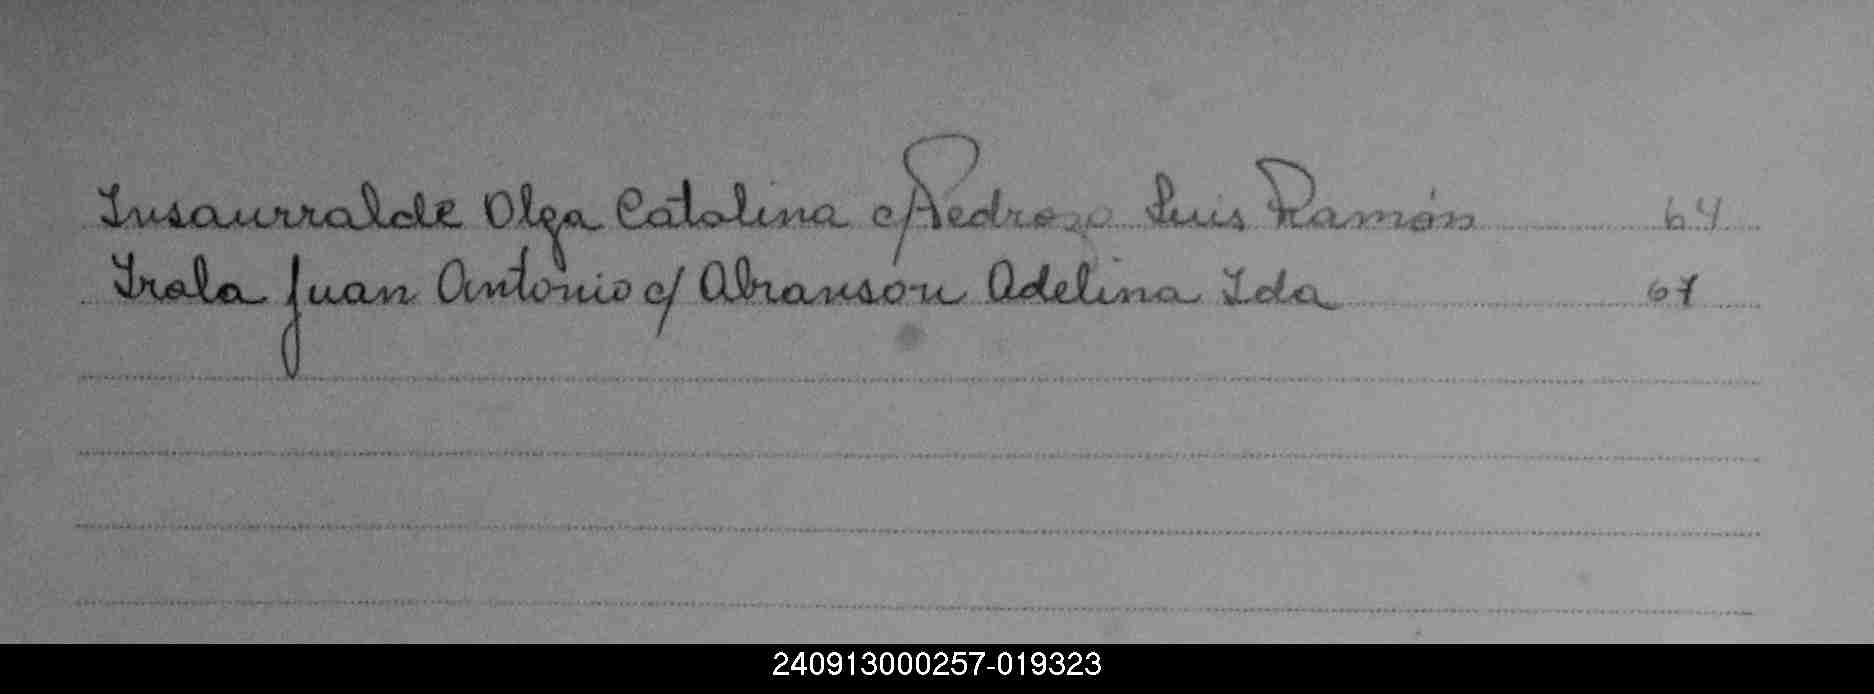 Insaurralde Olga Catalina c/ Pedrozo Luis Ramón 64
Irala Juan Antonio c/ Abranson Adelina Ida 67
240913000257-019323